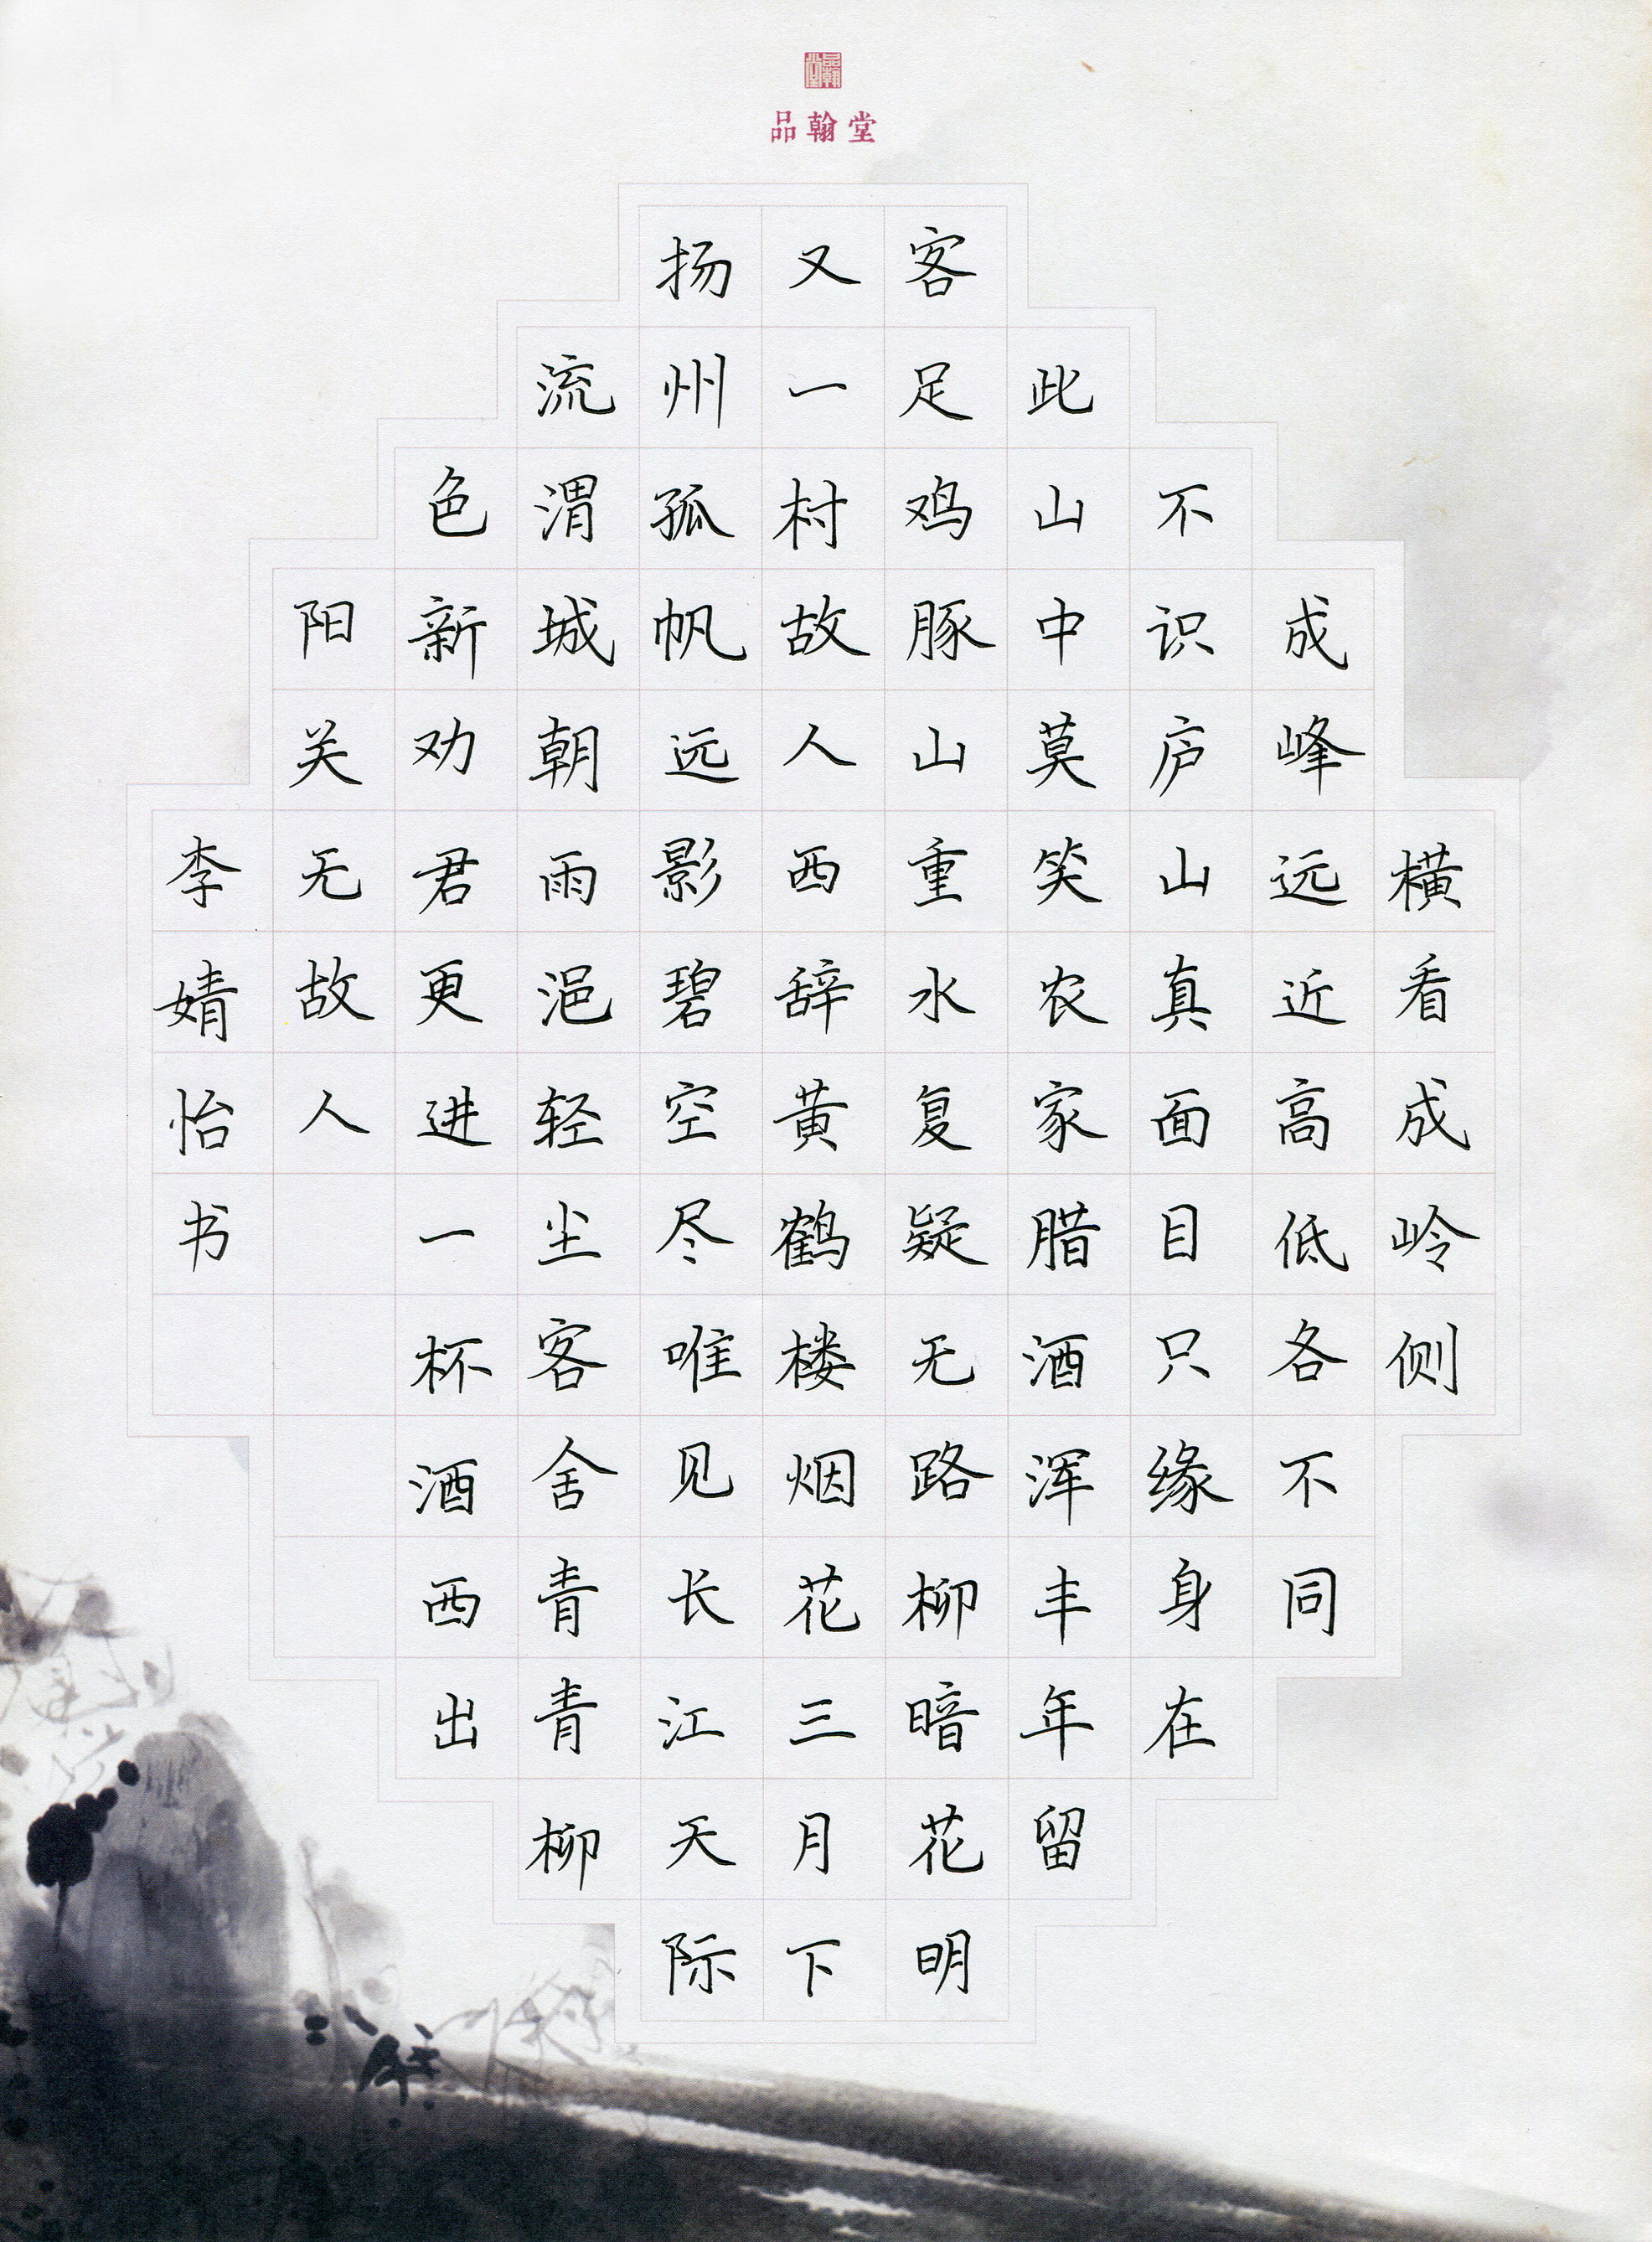 品翰堂
品翰堂
横看成岭侧
成峰远近高低各不同
不识庐山真面目只缘身在
此山中莫笑农家腊酒浑丰年留
客足鸡豚山重水复疑无路柳暗花明
又一村故人西辞黄鹤楼烟花三月下
扬州孤帆远影碧空尽唯见长江天际
流渭城朝雨浥轻尘客舍青青柳
色新劝君更进一杯酒西出
阳关无故人
李婧怡书